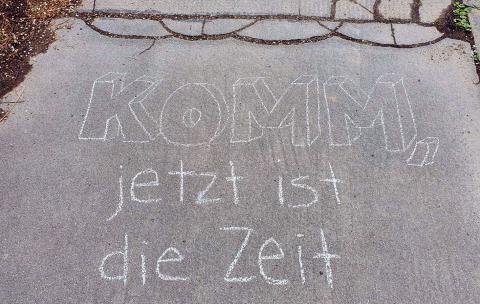 KOMM,
jetzt ist
die Zeit